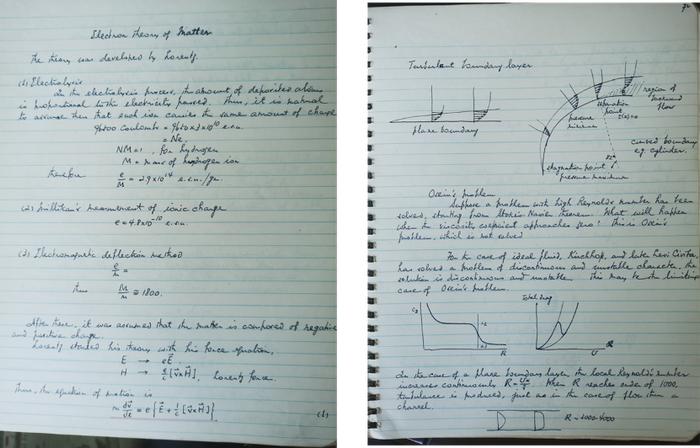 Electron Theory of Matter
The theory was developed by Lorentz.
(1) Electrolysis
In the electrolysis process, the amount of deposited
is proportional to the electricity passed. Thus, it is natural
to assume then that each ion carries the same amount of charge
9650 Coulomb = 9650 x 3 x 10^10 e.s.u.
= Ne,
NM = 1, for hydrogen
M = mass of hydrogen ion
therefore e/M = 2.9 x 10^14 e.s.u./gm.
(2) Millikan's measurement of ionic charge
e = 4.8 x 10^-10 e.s.u.
(3) Electromagnetic deflection method
e/m =
thus M/m ≅ 1800.
After these, it was assumed that the matter is composed of negative
and positive charge.
Lorentz started his theory with his force equation,
E → eE
H → e/c [v x H], Lorentz force.
Thus, the equation of motion is
m dv/dt = e { E + 1/c [v x H] } (1)
Turbulent boundary layer
region of
reversed
flow
separation
point
pressure
plane boundary
curved boundary
e.g. cylinder.
stagnation point
pressure maximum
Oseen's problem
Suppose a problem with high Reynolds number has been
solved, starting from Stokes Navier theorem. What will happen
when the viscosity coefficient approaches zero? This is Oseen's
problem, which is not solved
For the case of ideal fluid, Kirchhoff, and later Levi Civita,
has solved a problem of discontinuous and unstable character, the
solution is discontinuous and unstable. This may be the limiting
case of Oseen's problem.
Total drag
R
U
In the case of a plane boundary layer, the local Reynold's number
increases continuously R = When R reaches order of 1000,
turbulence is produced, just as in the case of flow thru a
channel.
R = 1000-4000